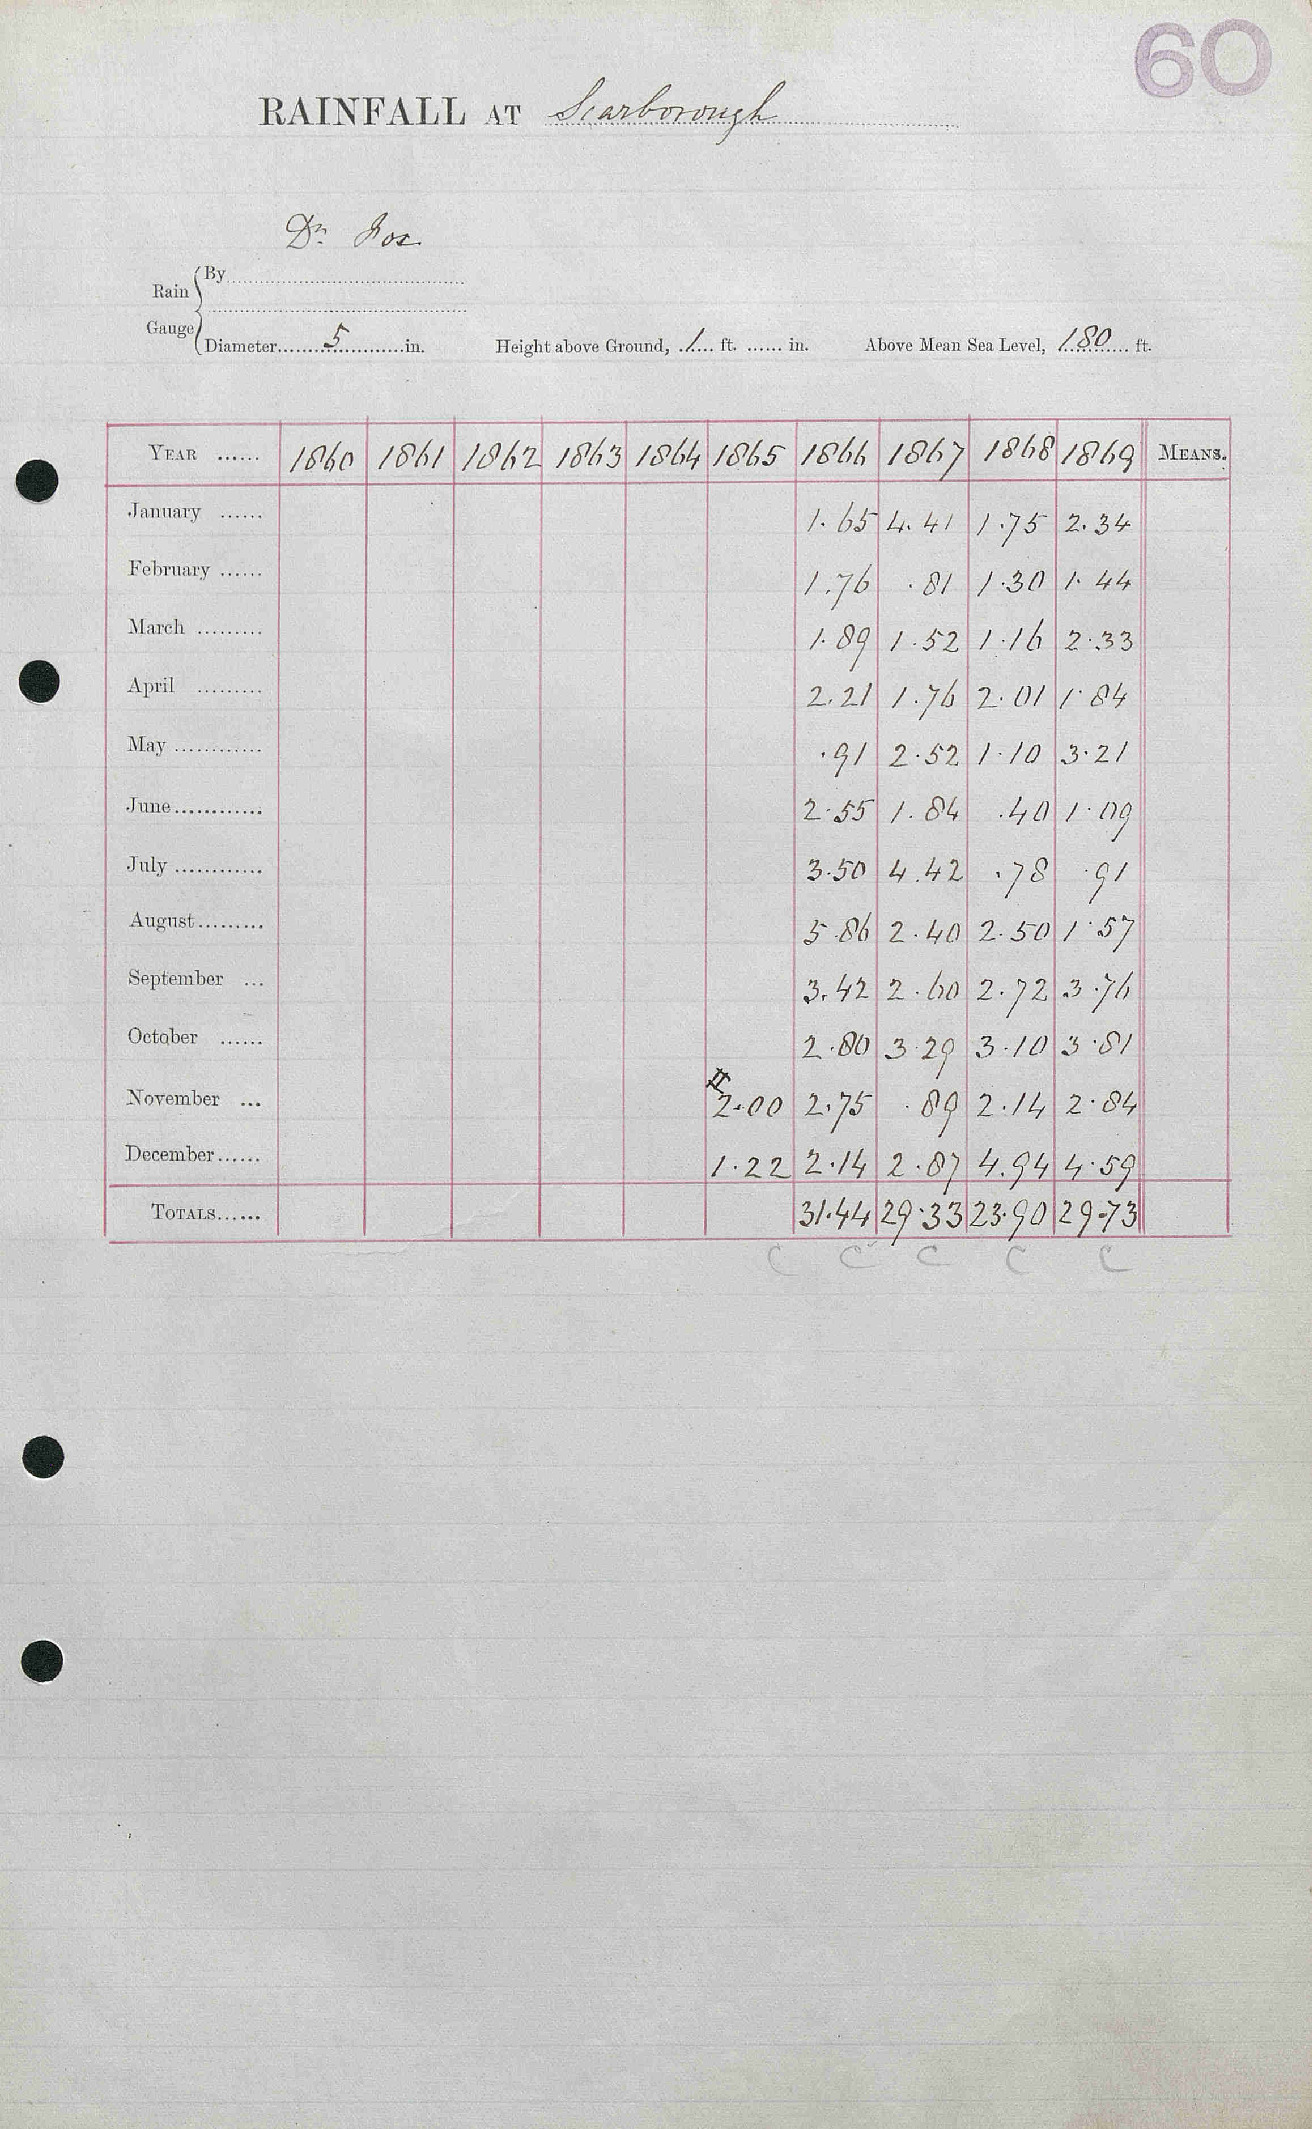 60
RAINFALL AT Scarborough
Dr. Fox
Rain Gauge
By
Diameter 5 in. Height above Ground, 1 ft. in. Above Mean Sea Level, 180 ft.
YEAR 1860 1861 1862 1863 1864 1865 1866 1867 1868 1869 MEANS.
January 1.65 4.41 1.75 2.34
February 1.76 .81 1.30 1.44
March 1.89 1.52 1.16 2.33
April 2.21 1.76 2.01 1.84
May .91 2.52 1.10 3.21
June 2.55 1.84 .40 1.09
July 3.50 4.42 .78 .91
August 5.86 2.40 2.50 1.57
September 3.42 2.60 2.72 3.76
October 2.80 3.29 3.10 3.81
November 2.00 2.75 .89 2.14 2.84
December 1.22 2.14 2.87 4.94 4.59
TOTALS 31.44 29.33 23.90 29.73
C C C C C